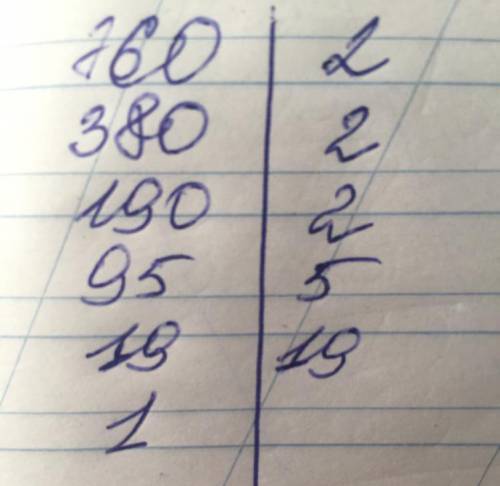 760 | 2
380 | 2
190 | 2
95 | 5
19 | 19
1 |